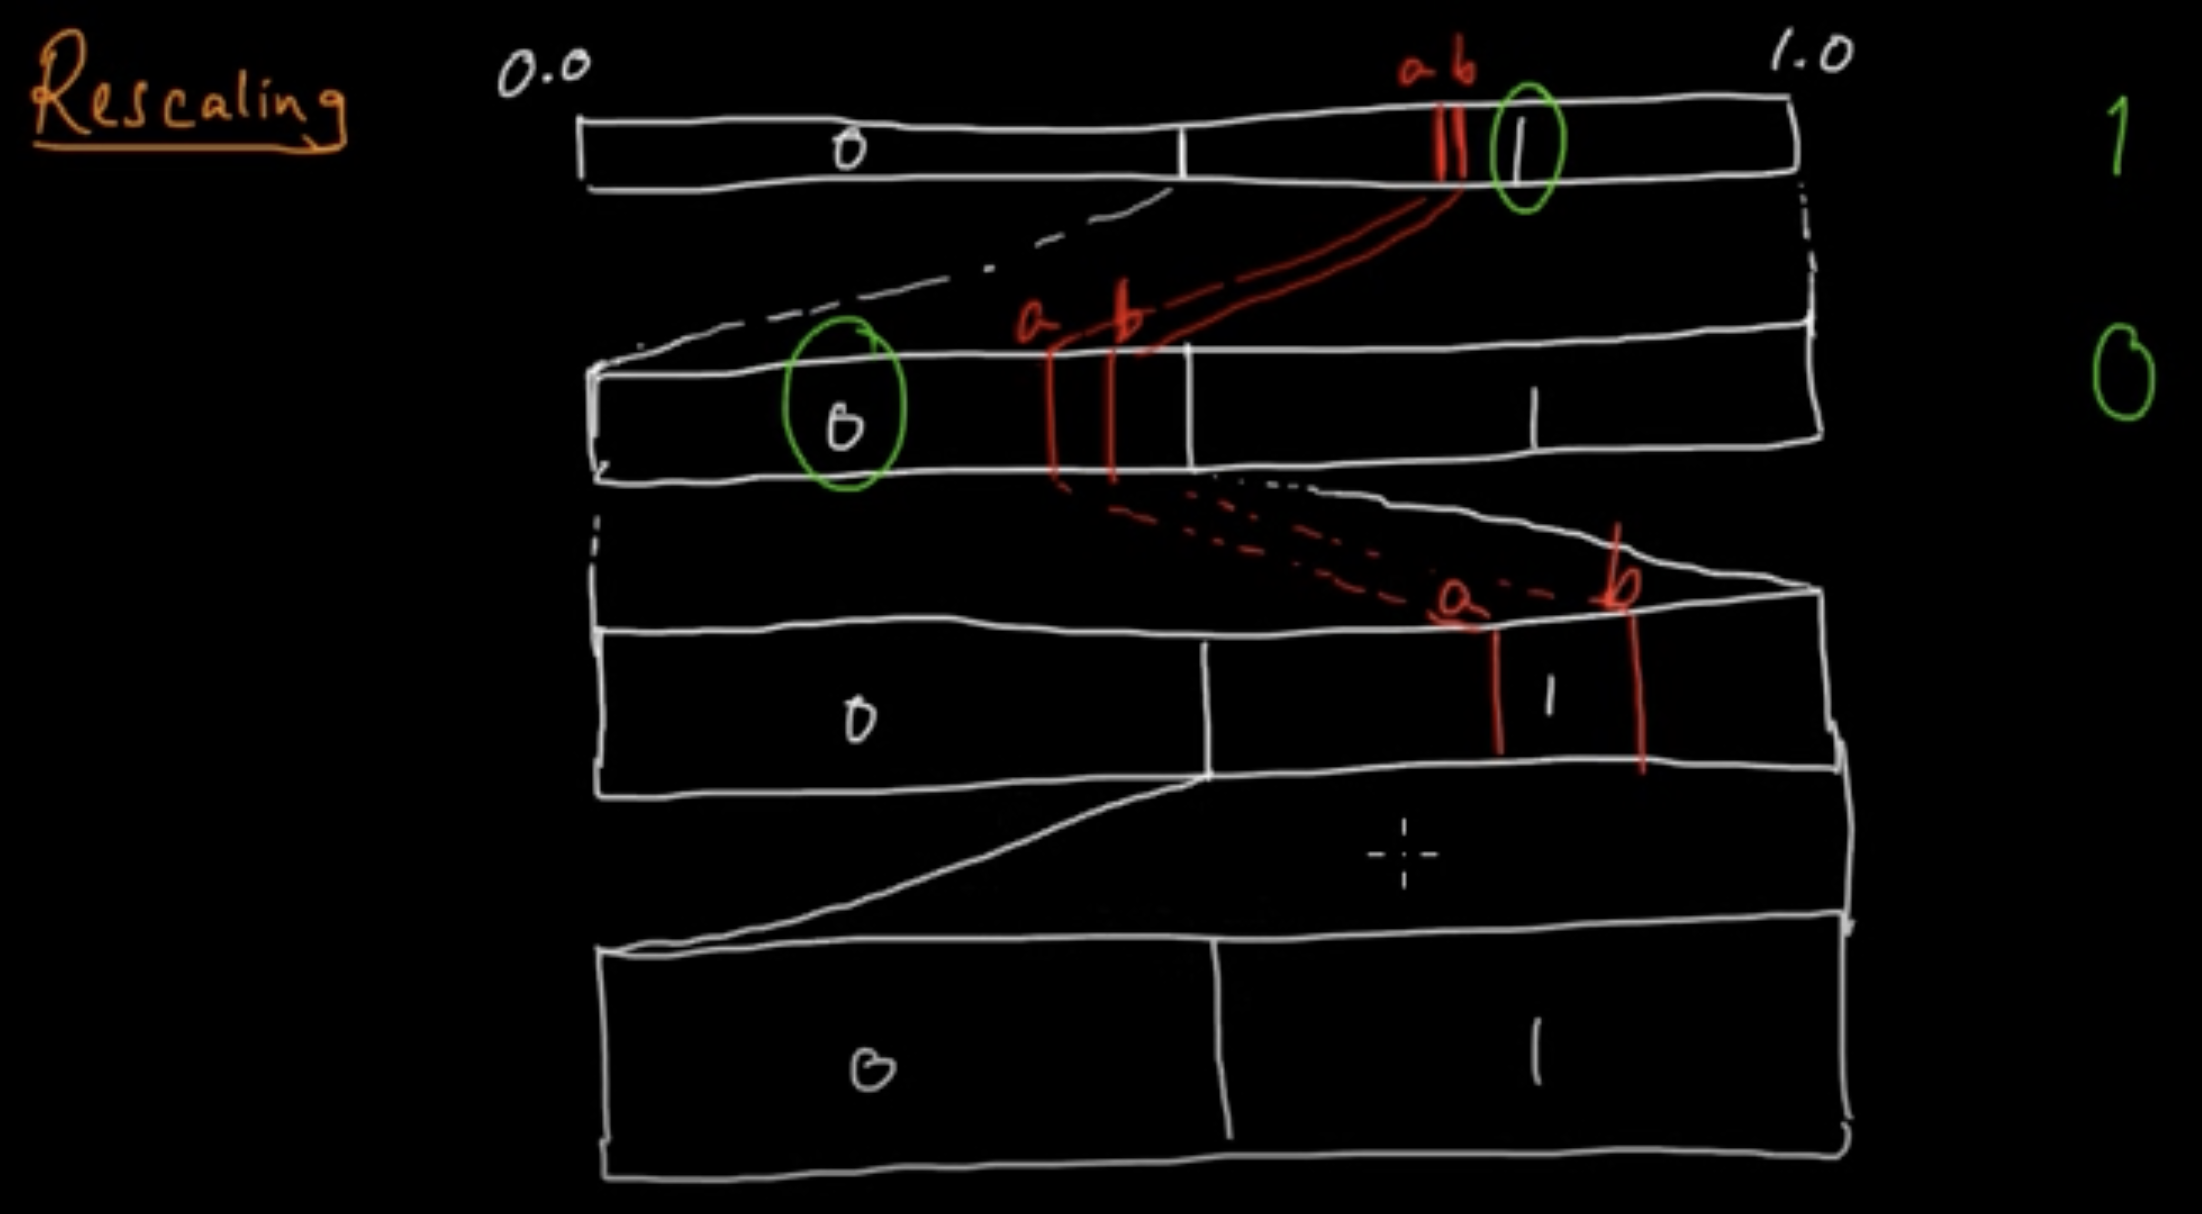 Rescaling
0.0 a b 1.0
0 1 1
a b
0 1 0
a b
0 1
0 1